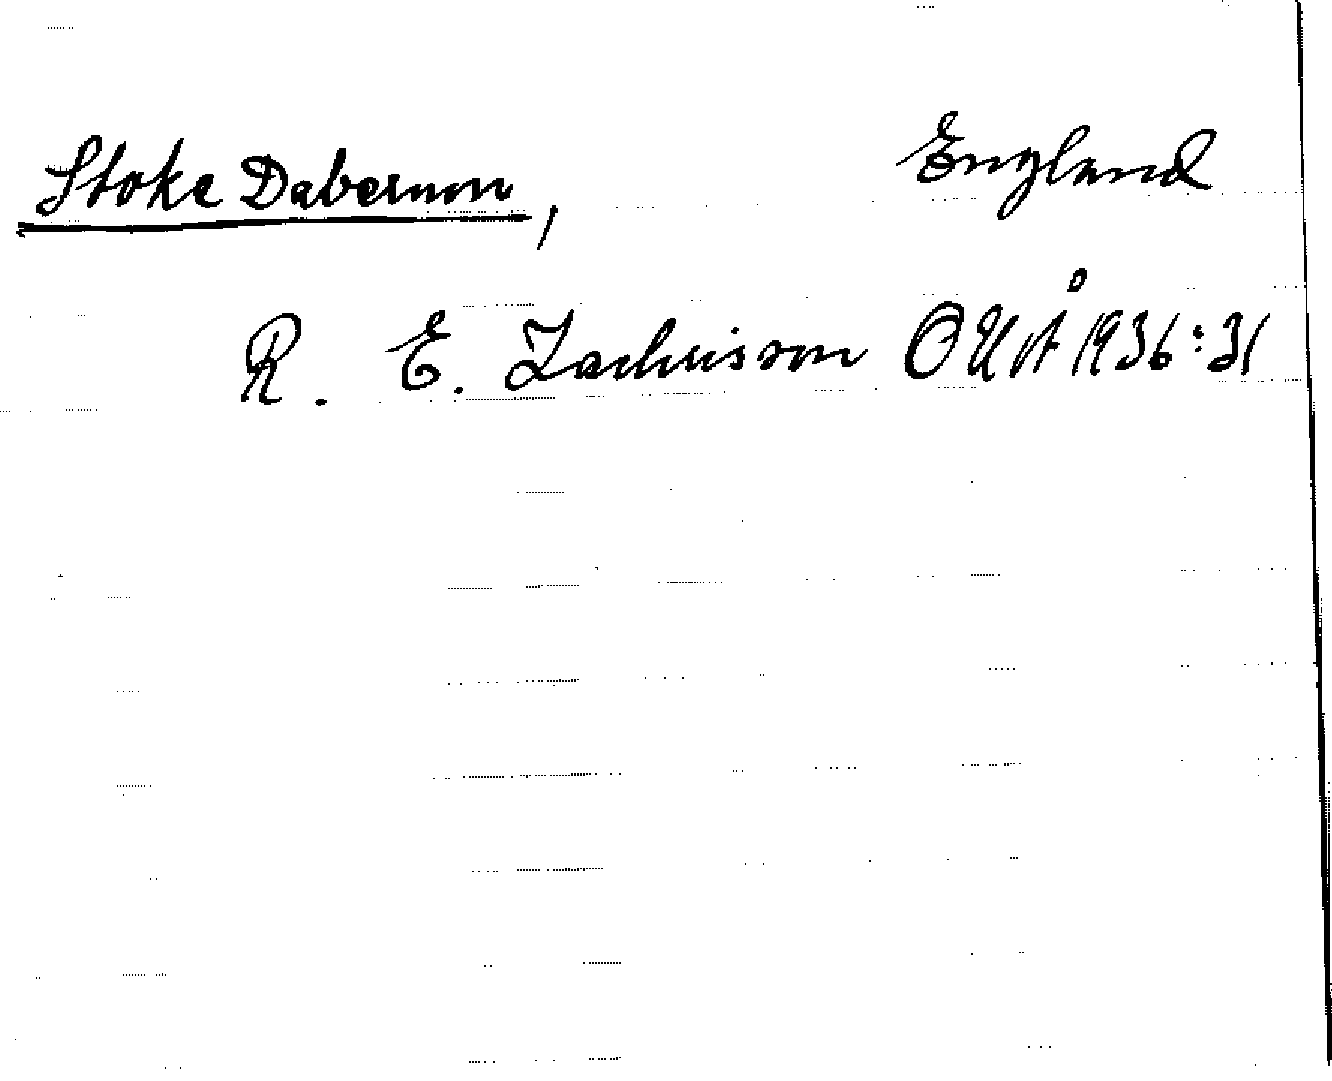 Stoke Dabernon, England
R. E. Zachrisson OUÅ 1936:31